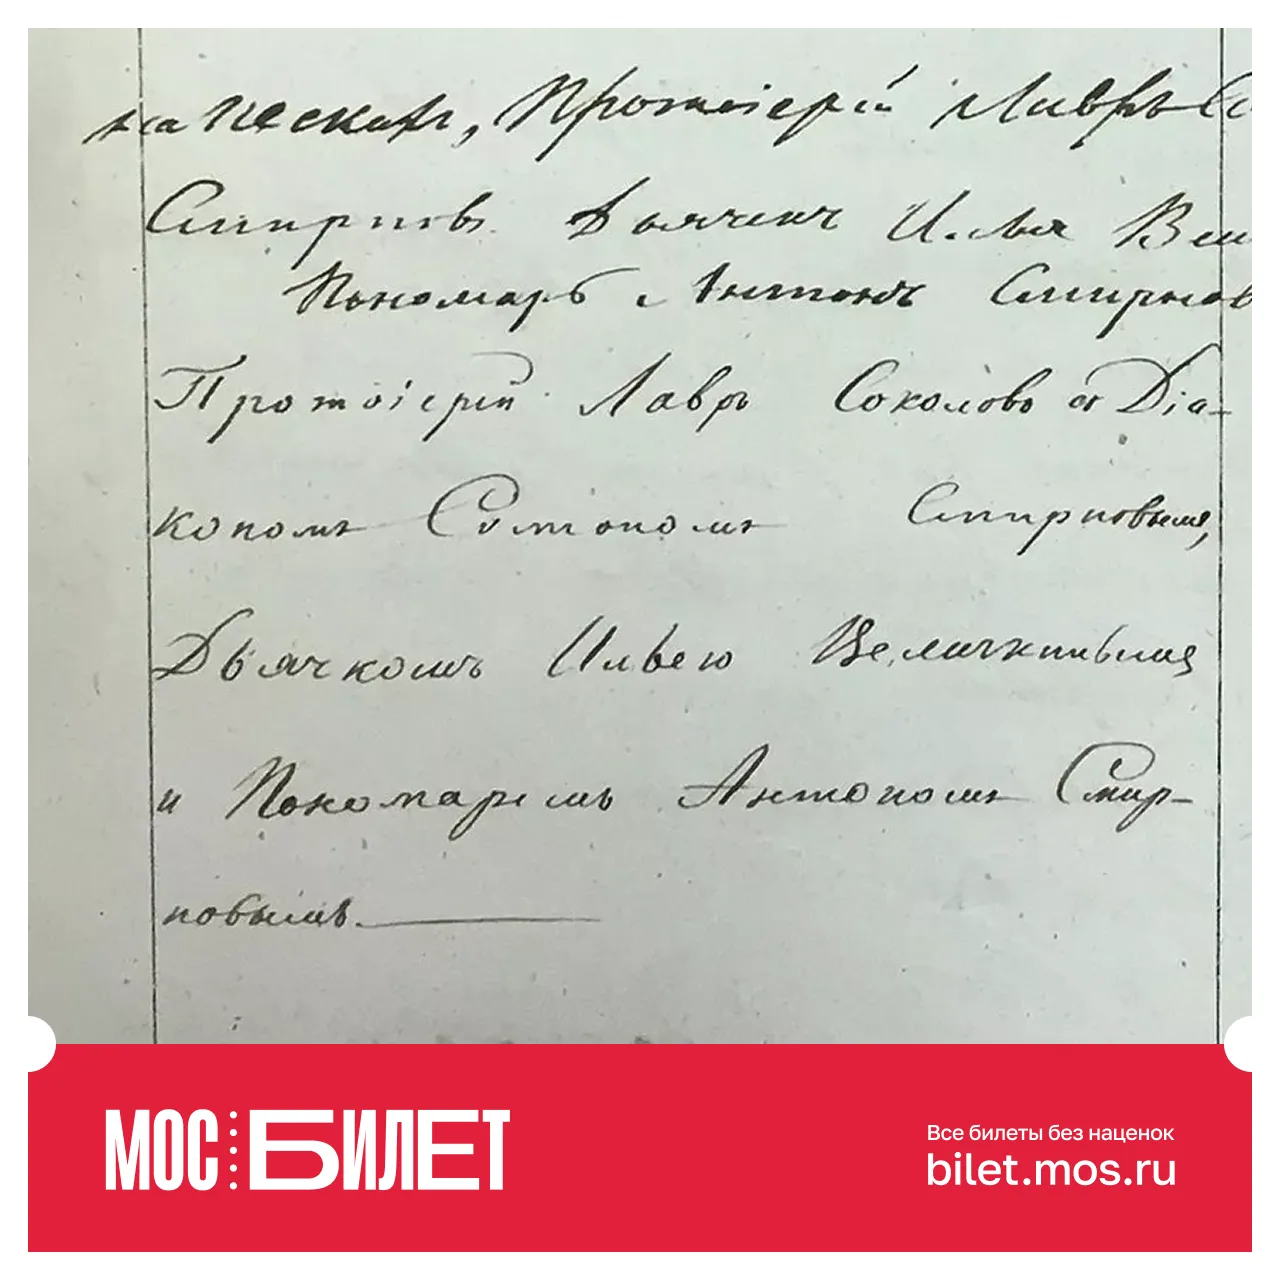 на Пескахъ, Протоіерей Лавръ Со
Смирновъ. Дьячекъ Илья Вели
Пономарь Антонъ Смирнов
Протоіерей Лавръ Соколовъ съ Діа-
кономъ Симономъ Смирновымъ,
Дьячкомъ Ильею Величкинымъ
и Пономаремъ Антономъ Смир-
новымъ.
МОСБИЛЕТ
Все билеты без наценок
bilet.mos.ru